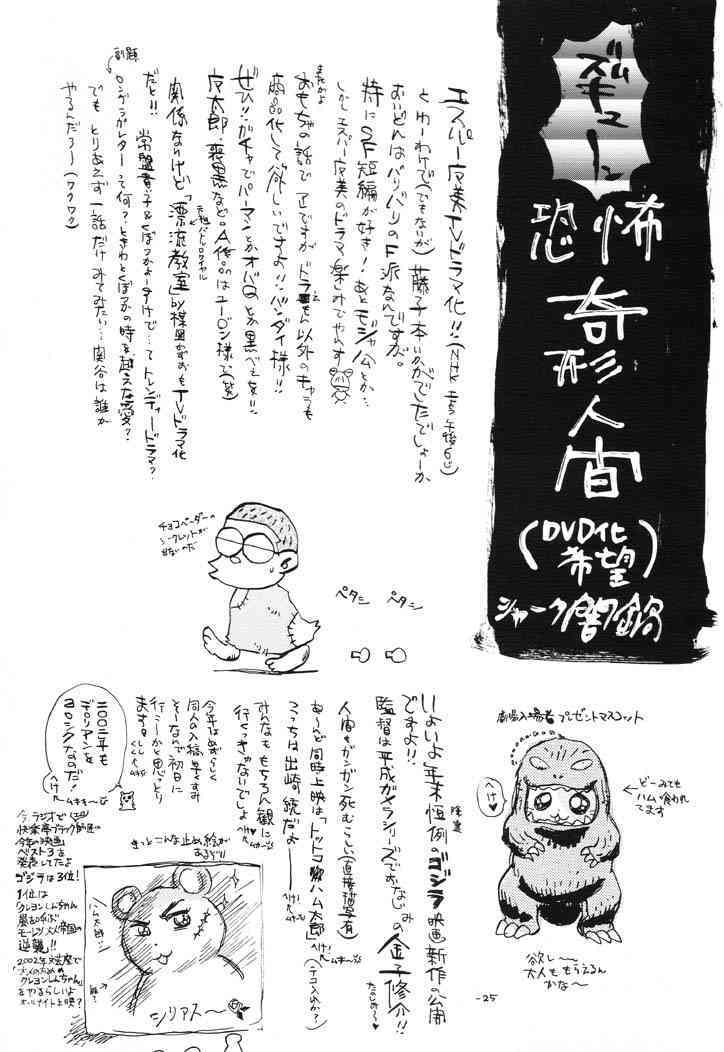 ズムキューン
恐怖
奇形人間
(DVD化希望)
シャーク闇鍋
エスパー魔美TVドラマ化!!(NHK 午後6:)
とゆーわけで(でもないが)藤子本いかがでしたでしょーか
おいどんはバリバリのF派なんですが。
特にSF短編が好き!あとモジャ公とか…
しかしエスパー魔美のドラマ楽しみでやんす
おもちゃの話で 正ですが ドラえもん以外のキャラも
商品化して欲しいですよ!!バンダイ様!!
ぜひ!!ガチャでパーマンとかオバQとか黒べえを!!
魔太郎、喪黒などA作品はユージン様で(笑)
関係ないけど「漂流教室」by楳図かずおもTVドラマ化
元祖バトルロワイヤル
だと!! 常盤貴子&くぼづかよーすけで…ってトレンディードラマ?
副題
ロングラブレターって何?ときわとくぼづかの時を越えた愛?
でも とりあえず一話だけみてみたい…関谷は誰が
やるんだろー(ワクワク)
チョコベーダーの
シークレットが
出ないのだ
ペタシ
ペタシ
劇場入場者プレゼントマスコット
どーみても
ハム喰われてます
へけ♥
欲し〜
大人ももらえるん
かな〜
いよいよ年末恒例のゴジラ映画新作の公開
ですよ!!
監督は平成ガメラシリーズでおなじみの金子修介!!
たのしみ〜♥
人間もガンガン死ぬらしい(直接描写有)
あーんど同時上映は「トッコ ハム太郎」
(テコ入れか?)
こっちは出崎 統だよ――
みんなももちろん観に
行くっきゃないでしょ
今年はめずらしく
同人の入稿早くすみ
そーなので初日に
行こーかと思っとり
ます。
二〇〇二年も
デロリアンを
ヨロシクなのだ!
へけ
今、ラジオで
快楽亭ブラック師匠が
今年の映画
ベスト3を
発表してたよ
ゴジラは3位!
1位は
クレヨンしんちゃん
嵐を呼ぶ
モーレツ大人帝国の
逆襲!!
2002年文芸座で
「大人のための
クレヨンしんちゃん」
をやるらしいよ
オールナイト上映?
きっとこんな止め絵が
あるぞ!!
ハム太郎…
誰?
シリアス〜
-25